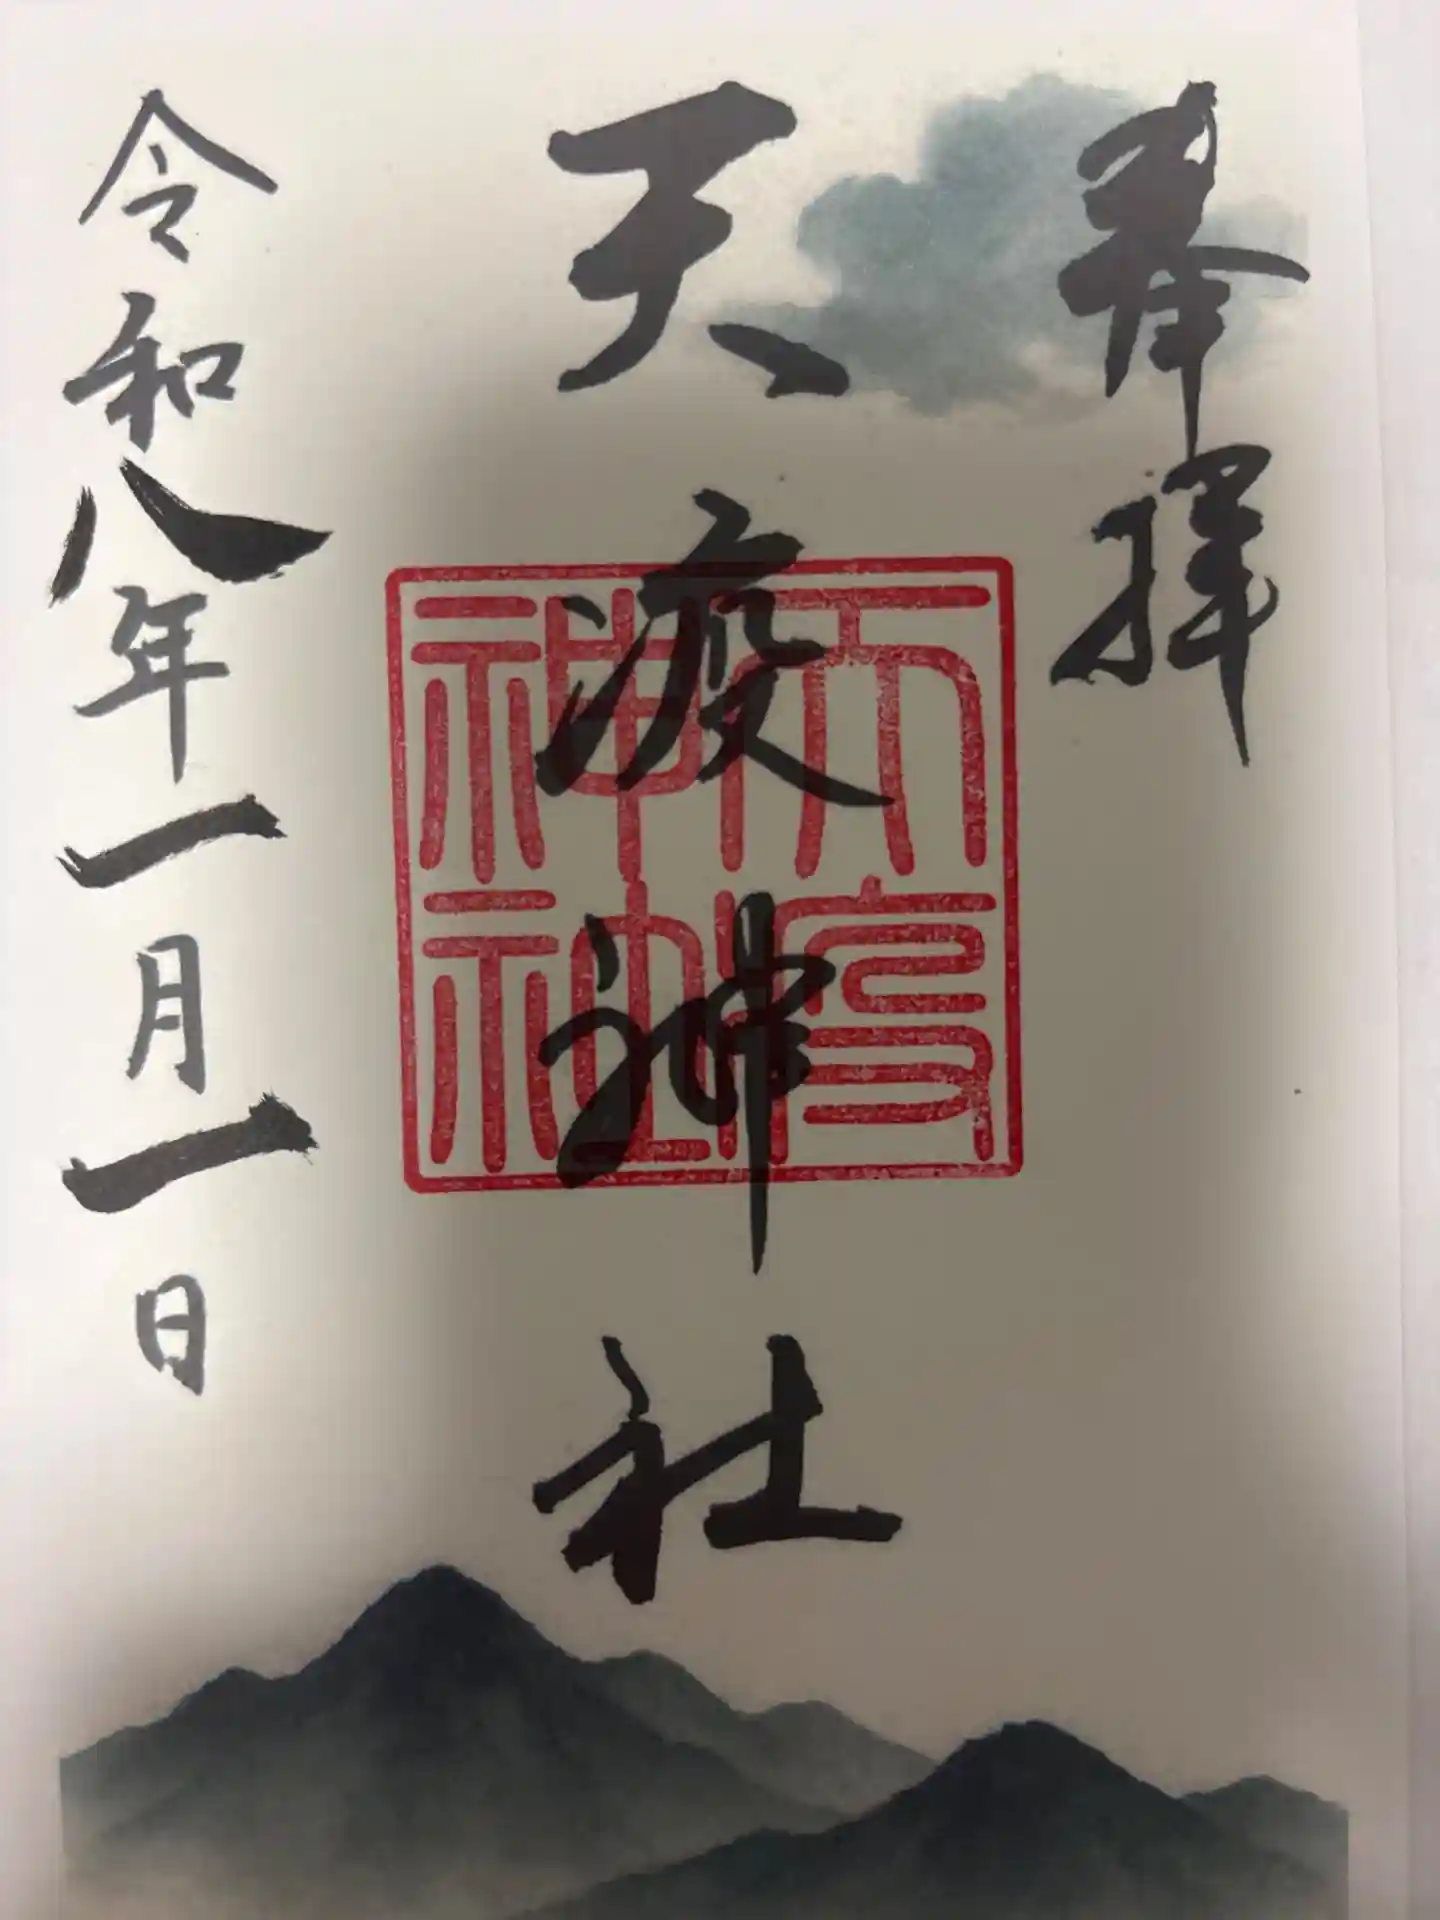 奉拝
天疫神社
天疫神社
令和八年一月一日